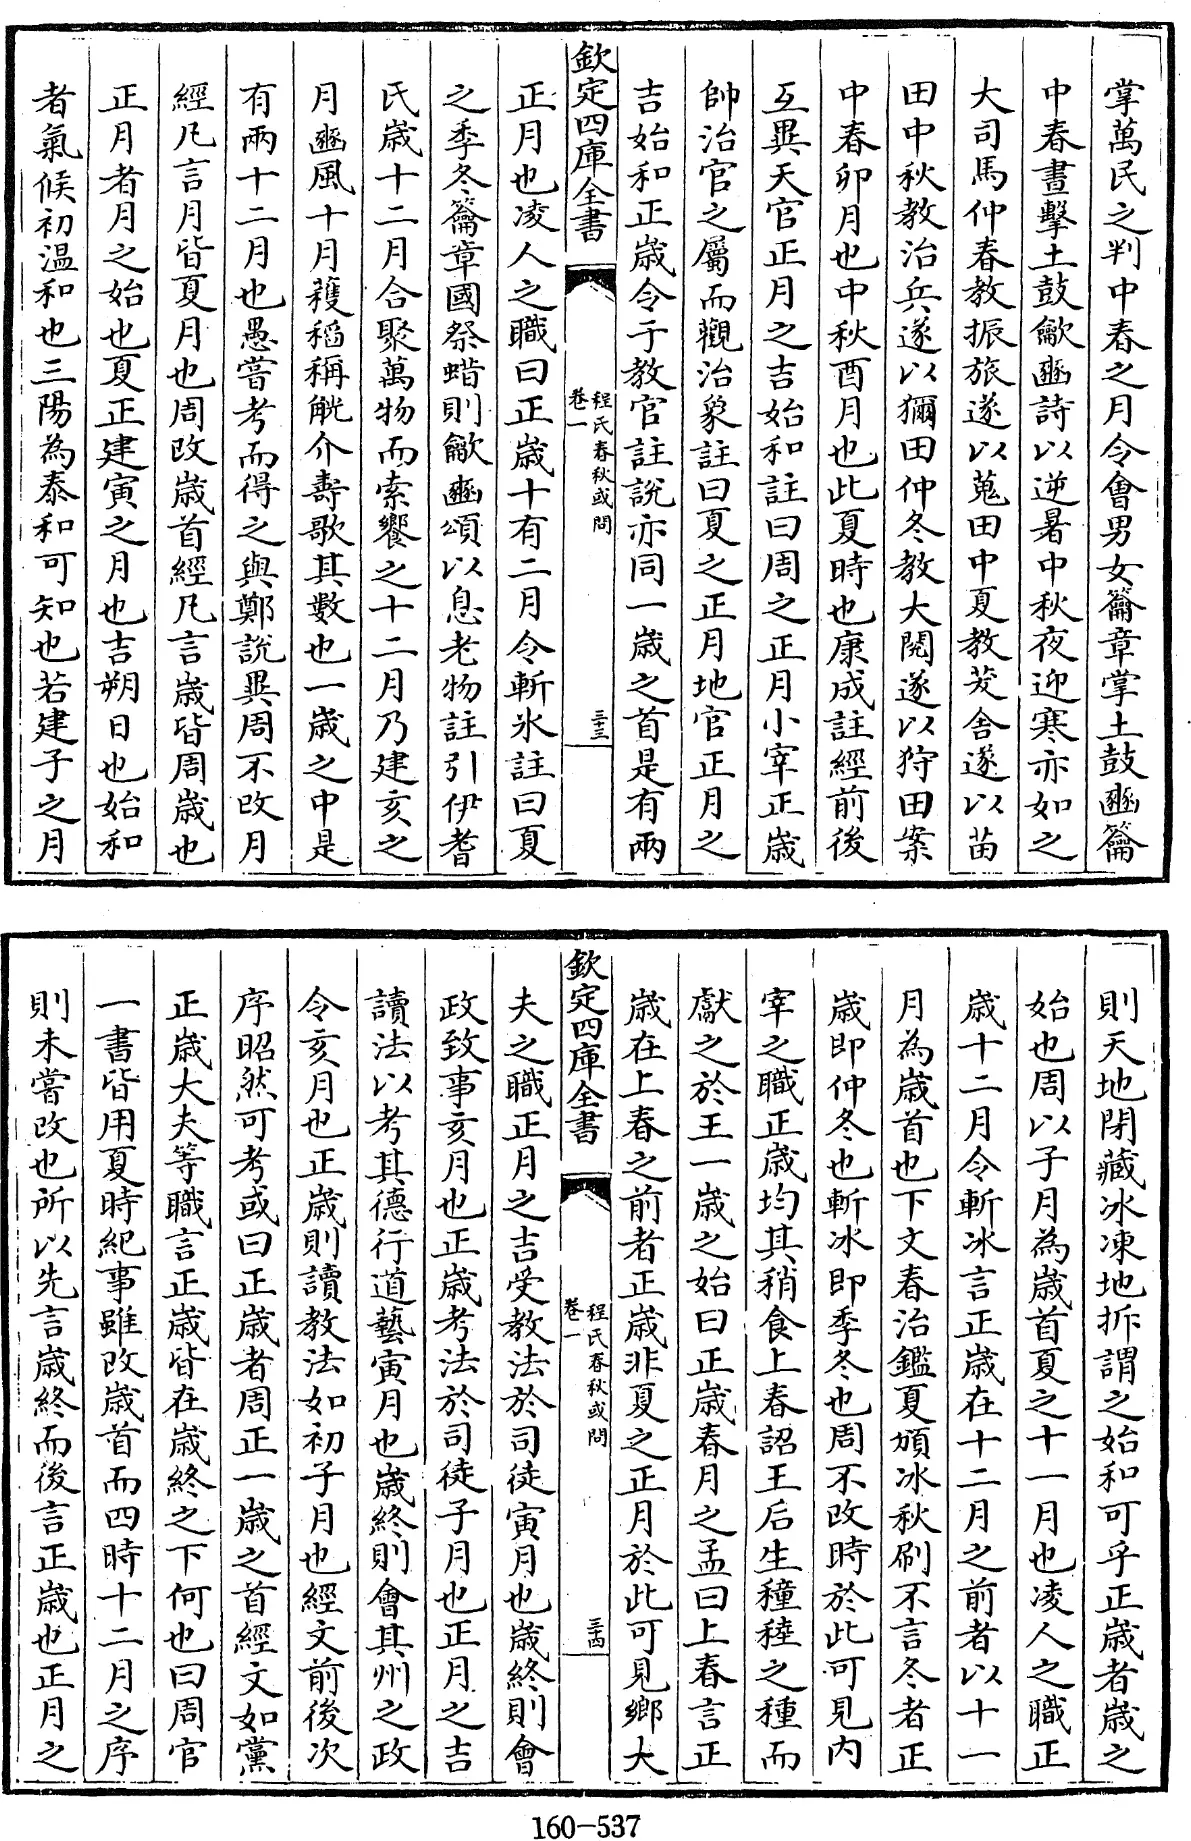 掌萬民之判中春之月令會男女籥章掌土鼓豳籥
中春晝擊土鼓龡豳詩以逆暑中秋夜迎寒亦如之
大司馬仲春教振旅遂以蒐田中夏教茇舍遂以苗
田中秋教治兵遂以獮田仲冬教大閱遂以狩田案
中春卯月也中秋酉月也此夏時也康成註經前後
互異天官正月之吉始和註曰周之正月小宰正歲
帥治官之屬而觀治象註曰夏之正月地官正月之
吉始和正歲令于教官註說亦同一歲之首是有兩
欽定四庫全書
程氏春秋或問
卷一
三十三
正月也凌人之職曰正歲十有二月令斬氷註曰夏
之季冬籥章國祭蜡則龡豳頌以息老物註引伊耆
氏歲十二月合聚萬物而索饗之十二月乃建亥之
月豳風十月穫稻稱觥介壽歌其數也一歲之中是
有兩十二月也愚嘗考而得之與鄭說異周不改月
經凡言月皆夏月也周改歲首經凡言歲皆周歲也
正月者月之始也夏正建寅之月也吉朔日也始和
者氣候初溫和也三陽為泰和可知也若建子之月
則天地閉藏冰凍地拆謂之始和可乎正歲者歲之
始也周以子月為歲首夏之十一月也凌人之職正
歲十二月令斬冰言正歲在十二月之前者以十一
月為歲首也下文春治鑑夏頒冰秋刷不言冬者正
歲即仲冬也斬冰即季冬也周不改時於此可見內
宰之職正歲均其稍食上春詔王后生穜稑之種而
獻之於王一歲之始曰正歲春月之孟曰上春言正
歲在上春之前者正歲非夏之正月於此可見鄉大
欽定四庫全書
程氏春秋或問
卷一
三十四
夫之職正月之吉受教法於司徒寅月也歲終則會
政致事亥月也正歲考法於司徒子月也正月之吉
讀法以考其德行道藝寅月也歲終則會其州之政
令亥月也正歲則讀教法如初子月也經文前後次
序昭然可考或曰正歲者周正一歲之首經文如黨
正歲大夫等職言正歲皆在歲終之下何也曰周官
一書皆用夏時紀事雖改歲首而四時十二月之序
則未嘗改也所以先言歲終而後言正歲也正月之
160-537